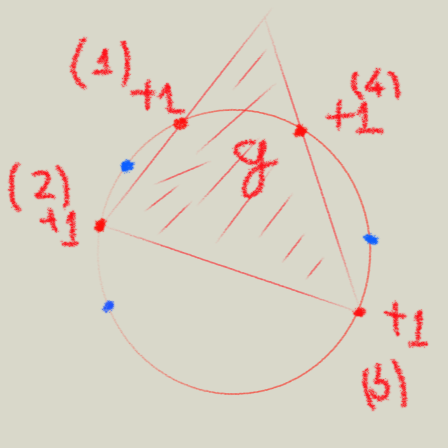 (1)
+1
(4)
+1
g
(2)
+1
+1
(3)